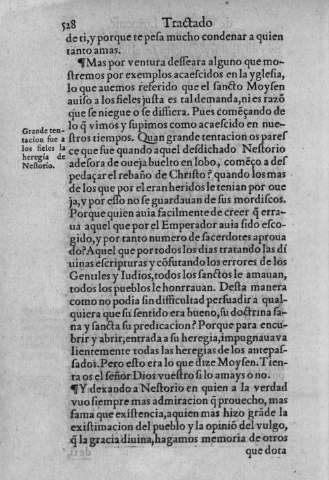 528 Tractado
de ti, y porque te pesa mucho condenar a quien
tanto amas.
¶Mas por ventura desseara alguno que mo-
stremos por exemplos acaescidos en la yglesia,
lo que auemos referido que el sancto Moysen
auiso a los fieles justa es tal demanda, ni es razõ
que se niegue o se difiera. Pues començãdo de
lo q̃ vimos y supimos como acaescido en nue-
stros tiempos. Quan grande tentacion os pares
ce que fue quando aquel desdichado Nestorio
adesora de oueja buelto en lobo, començo a des
pedaçar el rebaño de Christo? quando los mas
de los que por el eran heridos le tenian por oue
ja, y por esso no se guardauan de sus mordiscos.
Porque quien auia facilmente de creer q̃ erra-
ua aquel que por el Emperador auia sido esco-
gido, y por tanto numero de sacerdotes aproua
do? Aquel que por todos los dias tratando las di
uinas escripturas y cõfutando los errores de los
Gentiles y Iudios, todos los sanctos le amauan,
todos los pueblos le honrrauan. Desta manera
como no podia sin difficultad persuadir a qual-
quiera que su sentido era bueno, su doctrina sa-
na y sancta su predicacion? Porque para encu-
brir y abrir, entrada a su heregia, impugnaua va
lientemente todas las heregias de los antepas-
sados. Pero esto era lo que dize Moysen. Tien-
ta os el señor Dios vuestro si lo amays o no.
¶Y dexando a Nestorio en quien a la verdad
vuo siempre mas admiracion q̃ prouecho, mas
fama que existencia, a quien mas hizo grãde la
existimacion del pueblo y la opiniõ del vulgo,
q̃ la gracia diuina, hagamos memoria de otros
que dota
Grande ten-
tacion fue a
los fieles la
heregia de
Nestorio.